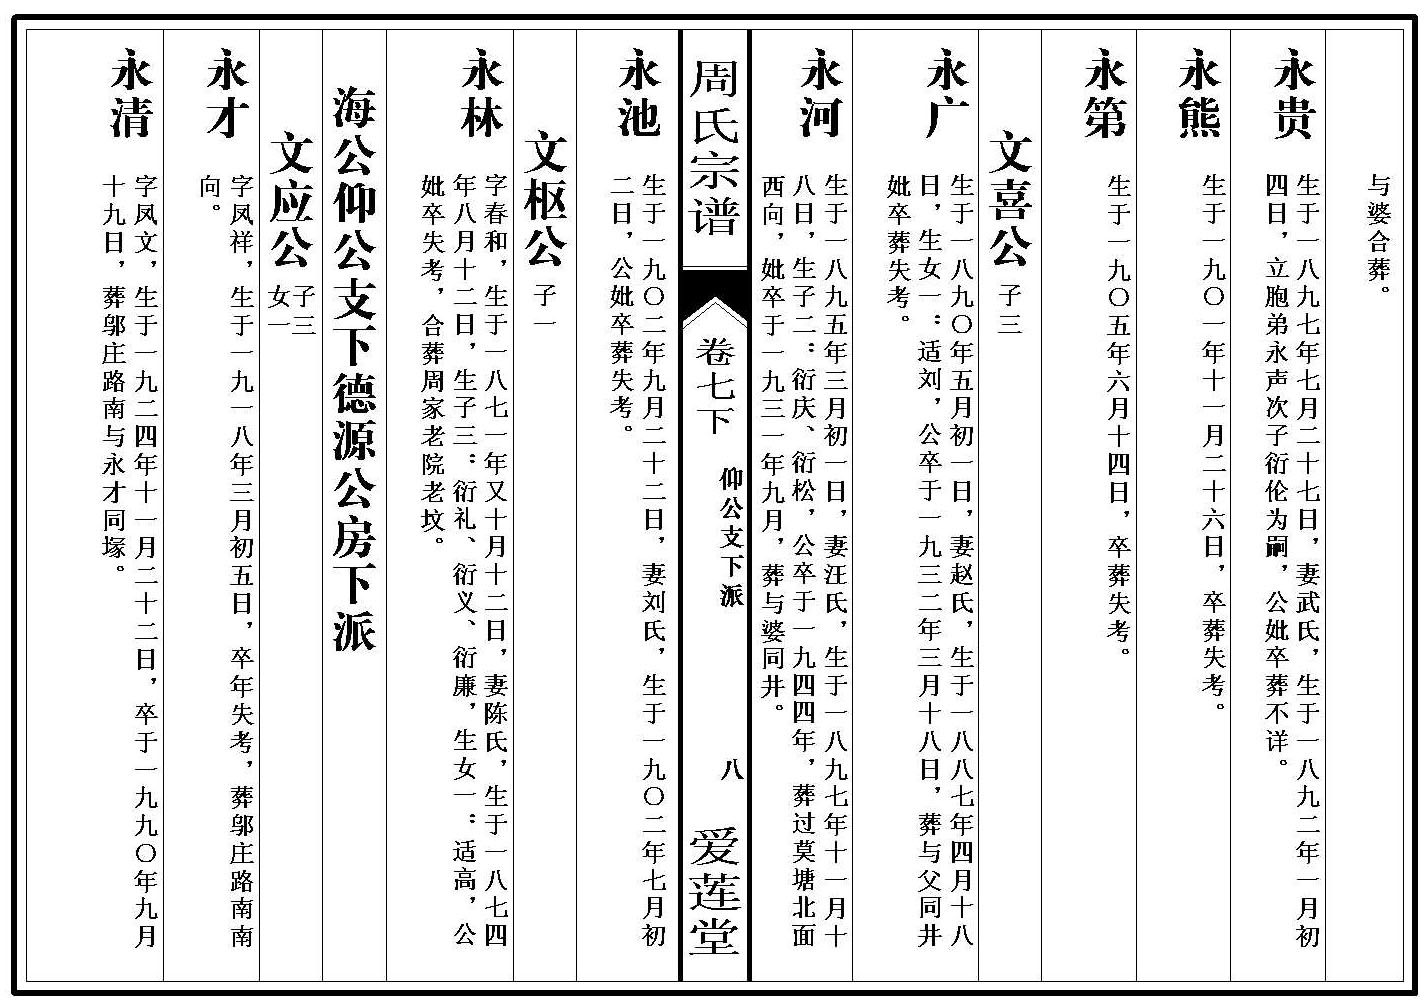 与婆合葬。
永贵
生于一八九七年七月二十七日，妻武氏，生于一八九二年一月初
四日，立胞弟永声次子衍伦为嗣，公妣卒葬不详。
永熊
生于一九〇一年十一月二十六日，卒葬失考。
永第
生于一九〇五年六月十四日，卒葬失考。
文喜公 子三
永广
生于一八九〇年五月初一日，妻赵氏，生于一八八七年四月十八
日，生女一：适刘，公卒于一九三二年三月十八日，葬与父同井
妣卒葬失考。
永河
生于一八九五年三月初一日，妻汪氏，生于一八九七年十一月十
八日，生子二：衍庆、衍松，公卒于一九四四年，葬过莫塘北面
西向，妣卒于一九三一年九月，葬与婆同井。
周氏宗谱
卷七下
仰公支下派
八
爱莲堂
永池
生于一九〇二年九月二十二日，妻刘氏，生于一九〇二年七月初
二日，公妣卒葬失考。
文枢公 子一
永林
字春和，生于一八七一年又十月十二日，妻陈氏，生于一八七四
年八月十二日，生子三：衍礼、衍义、衍廉，生女一：适高，公
妣卒失考，合葬周家老院老坟。
海公仰公支下德源公房下派
文应公 子三
女一
永才
字凤祥，生于一九一八年三月初五日，卒年失考，葬邬庄路南南
向。
永清
字凤文，生于一九二四年十一月二十二日，卒于一九九〇年九月
十九日，葬邬庄路南与永才同塚。